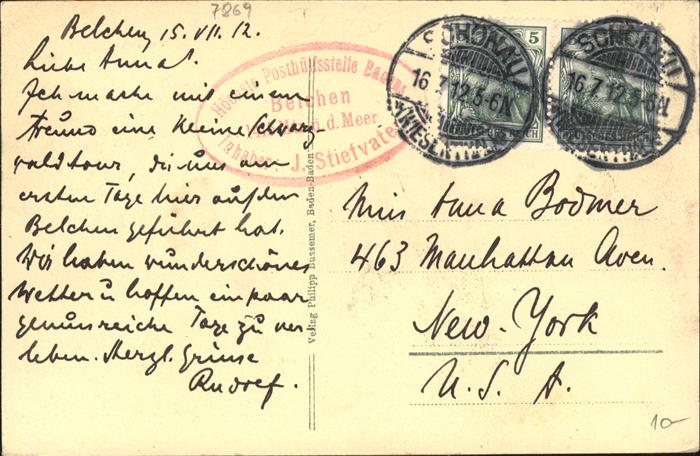 7869
Belchen, 15. VII. 12.
Liebe Anna!
Ich mache mit einem
Freund eine kleine Schwarz
waldtour, die uns am
ersten Tage hier auf den
Belchen geführt hat.
Wir haben wunderschönes
Wetter u. hoffen ein paar
genussreiche Tage zu ver-
leben. Herzl. Grüsse
Rudolf.
Posthülfsstelle Badens
Belchen
ü. d. Meer
Inhaber: J. Stiefvater
Verlag Philipp Bussemer, Baden-Baden
SCHÖNAU
16.7.12.5-6N
(WIESENTHAL)
5
DEUTSCHES REICH
SCHÖNAU
16.7.12.5-6N
Miss Anna Bodmer
463 Manhattan Aven.
New-York
U. S. A.
10-